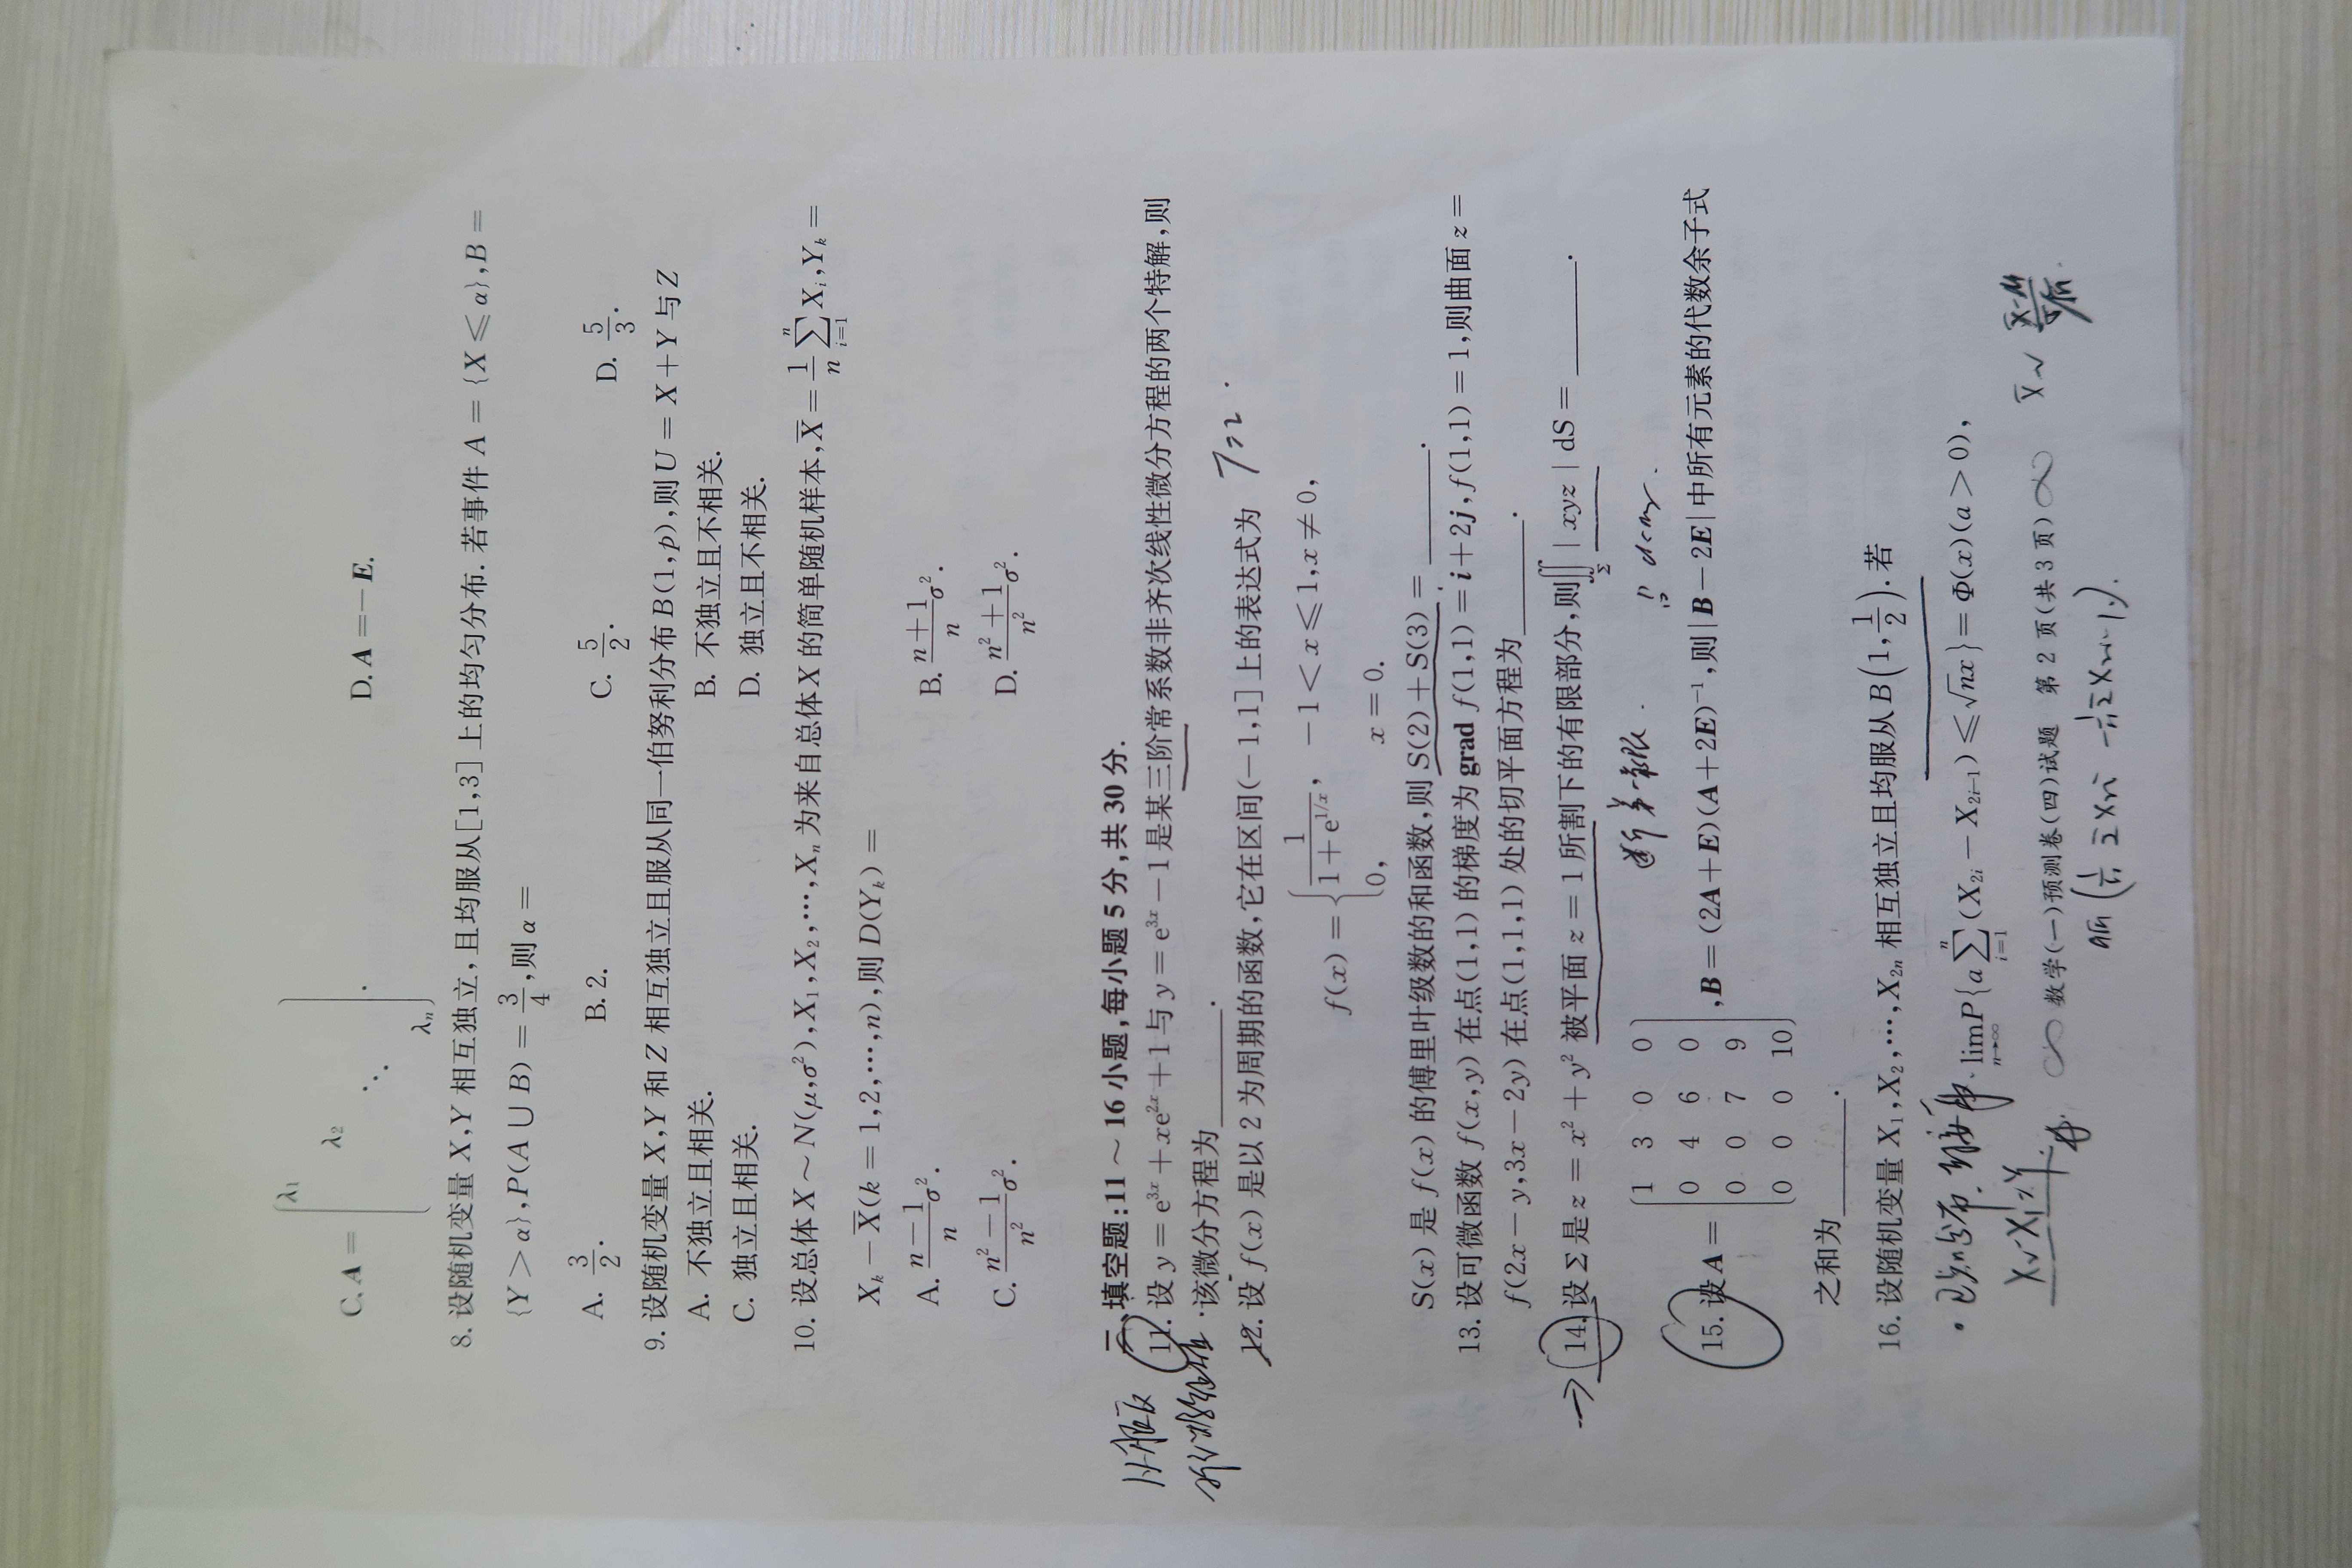 C. A = (λ₁ λ₂ ⋱ λₙ).
D. A = −E.
8. 设随机变量 X,Y 相互独立,且均服从[1,3]上的均匀分布. 若事件 A = {X ⩽ α},B =
{Y > α},P(A ∪ B) = 3/4,则 α =
A. 3/2. B. 2. C. 5/2. D. 5/3.
9. 设随机变量 X,Y 和 Z 相互独立且服从同一伯努利分布 B(1,p),则 U = X + Y 与 Z
A. 不独立且相关. B. 不独立且不相关.
C. 独立且相关. D. 独立且不相关.
10. 设总体 X ~ N(μ,σ²),X₁,X₂,⋯,Xₙ 为来自总体 X 的简单随机样本,X̄ = 1/n ∑ᵢ₌₁ⁿ Xᵢ,Yₖ =
Xₖ − X̄(k = 1,2,⋯,n),则 D(Yₖ) =
A. (n−1)/n σ². B. (n+1)/n σ².
C. (n²−1)/n² σ². D. (n²+1)/n² σ².
二、填空题:11 ~ 16 小题,每小题 5 分,共 30 分.
11. 设 y = e³ˣ + xe²ˣ + 1 与 y = e³ˣ − 1 是某三阶常系数非齐次线性微分方程的两个特解,则
该微分方程为______.
12. 设 f(x) 是以 2 为周期的函数,它在区间(−1,1]上的表达式为 T=2.
f(x) = { 1/(1+e^{1/x}), −1 < x ⩽ 1,x ≠ 0,
0, x = 0.
S(x) 是 f(x) 的傅里叶级数的和函数,则 S(2) + S(3) = ______.
13. 设可微函数 f(x,y) 在点(1,1)的梯度为 grad f(1,1) = i + 2j,f(1,1) = 1,则曲面 z =
f(2x − y,3x − 2y) 在点(1,1,1) 处的切平面方程为______.
14. 设 Σ 是 z = x² + y² 被平面 z = 1 所割下的有限部分,则∬_Σ | xyz | dS = ______.
15. 设 A = (1 3 0 0
0 4 6 0
0 0 7 9
0 0 0 10), B = (2A + E)(A + 2E)⁻¹,则 | B − 2E | 中所有元素的代数余子式
之和为______.
16. 设随机变量 X₁,X₂,⋯,X₂ₙ 相互独立且均服从 B(1, 1/2). 若
lim_{n→∞} P{a ∑ᵢ₌₁ⁿ (X₂ᵢ − X₂ᵢ₋₁) ⩽ √n x} = Φ(x)(a > 0),
数学(一)预测卷(四)试题 第 2 页(共 3 页)